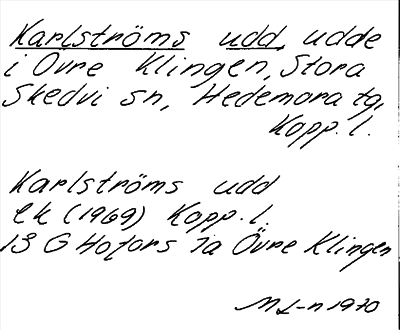 Karlströms udd, udde
i Övre Klingen, Stora
Skedvi sn, Hedemora tg,
Kopp. l.
Karlströms udd
Ek (1969) Kopp. l.
13 G Hofors 1a Övre Klingen
1970